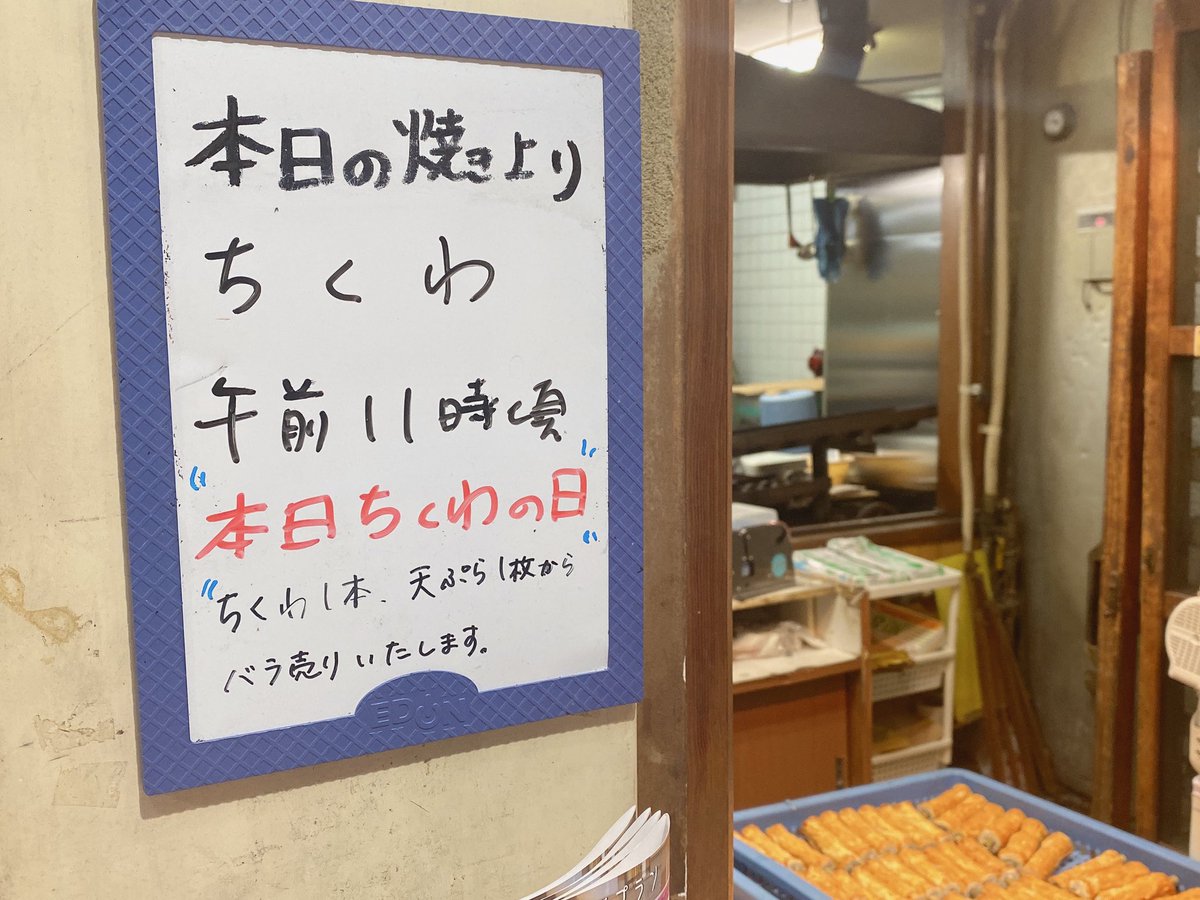 本日の焼き上り
ちくわ
午前11時頃
"本日ちくわの日"
ちくわ1本、天ぷら1枚から
バラ売りいたします。
EDON
プラン